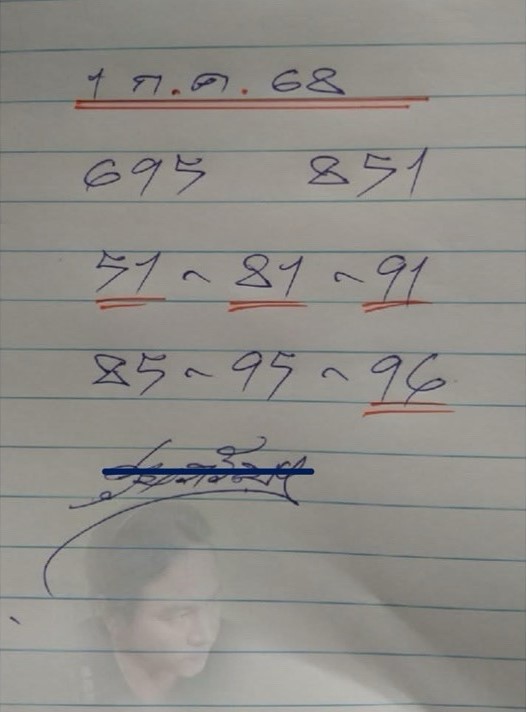 1 ก.ค. 68
695 851
51 ~ 81 ~ 91
85 ~ 95 ~ 96